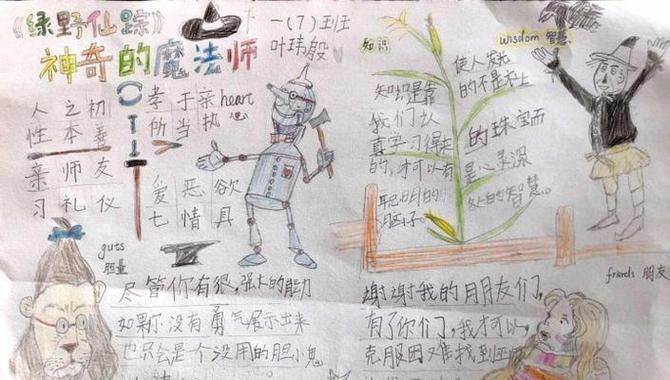 《绿野仙踪》
神奇的魔法师
一(7)班
叶玮殷
人之初
性本善
亲师友
习礼仪
孝于亲
所当执
heart
爱恶欲
七情具
guts
胆量
尽管你有很强大的能力
如果你没有勇气展示出来
也只会是个没用的胆小鬼
知识
知识是靠
我们认
真学习得来
的,才可以有
聪明的
头脑
wisdom 智慧
使人发光
的不是衣上
的珠宝而
是心灵深
处的智慧。
friends 朋友
谢谢我的朋友们,
有了你们,我才可以
克服困难找到